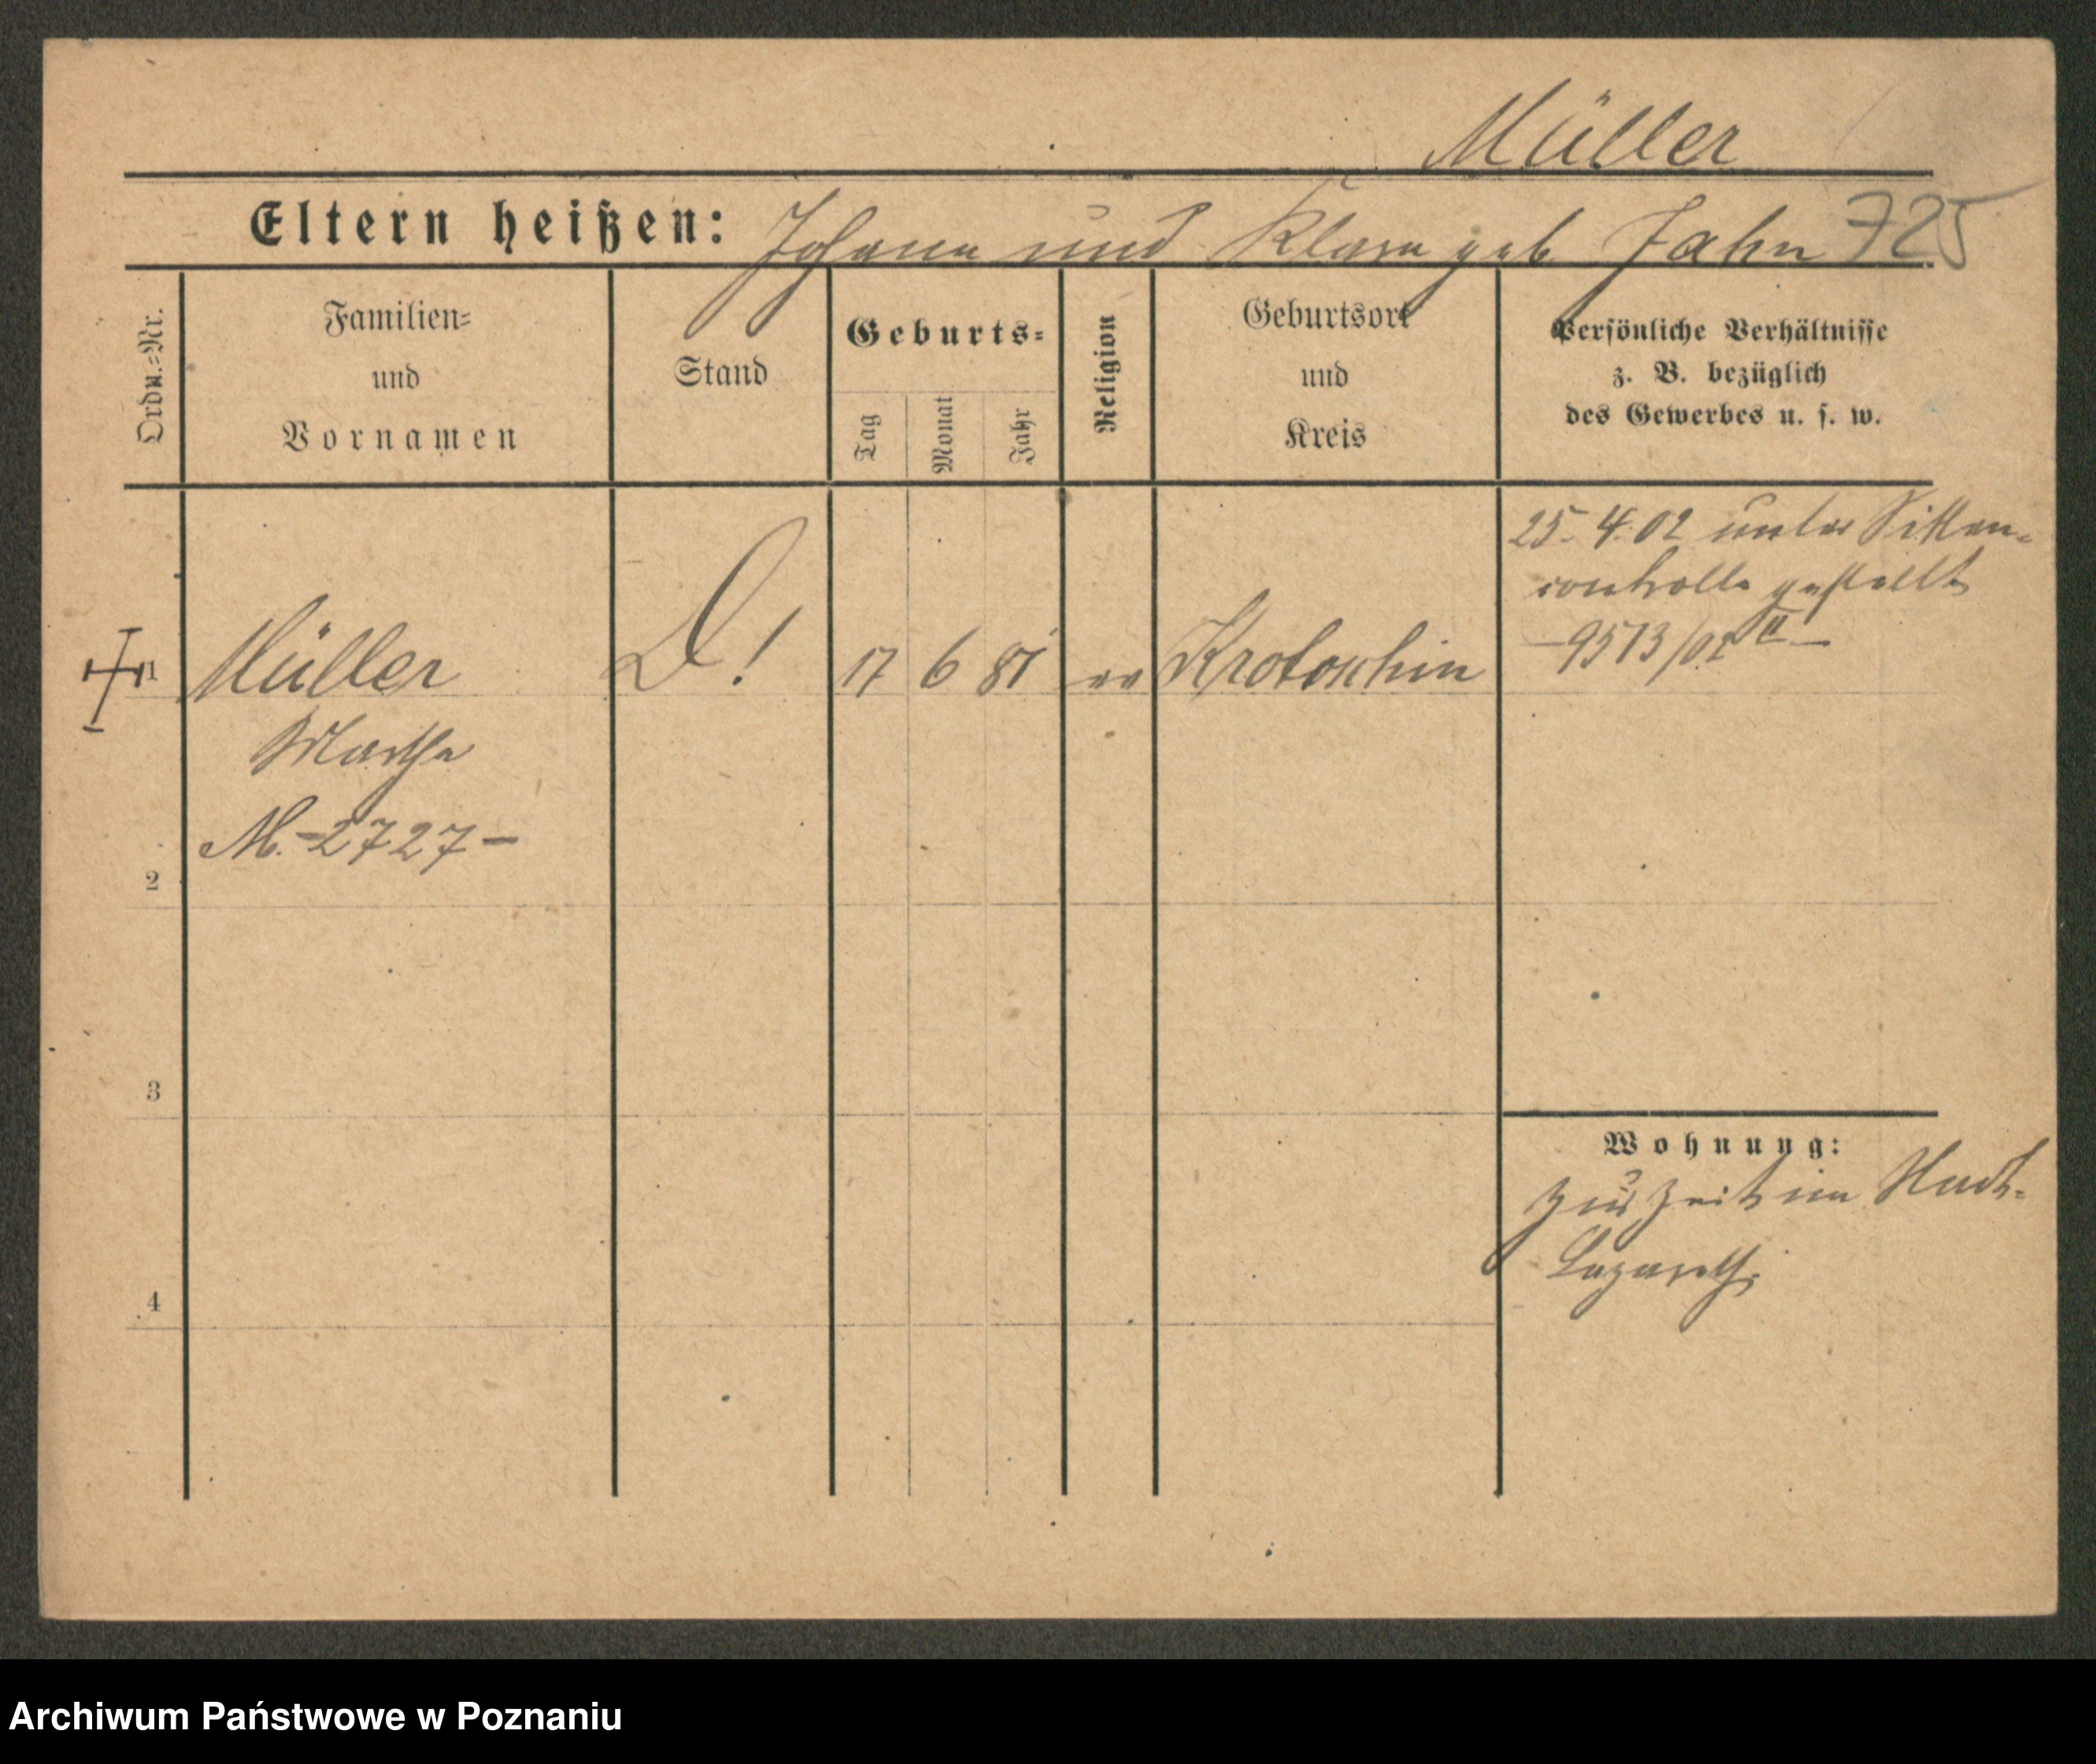 Müller
Eltern heißen: Johann und Klara geb Jahn 725
Ordn.=Nr.
Familien=
und
Vornamen
Stand
Geburts=
Tag
Monat
Jahr
Religion
Geburtsort
und
Kreis
Persönliche Verhältnisse
z. B. bezüglich
des Gewerbes u. s. w.
Müller D! 17 6 81 ev Krotoschin
Martha
M.-2727-
25.4.02 unter Sitten-
controlle gestellt
-9513/02 II-
2
3
4
Wohnung:
zur Zeit im Stadt-
Lazareth.
Archiwum Państwowe w Poznaniu